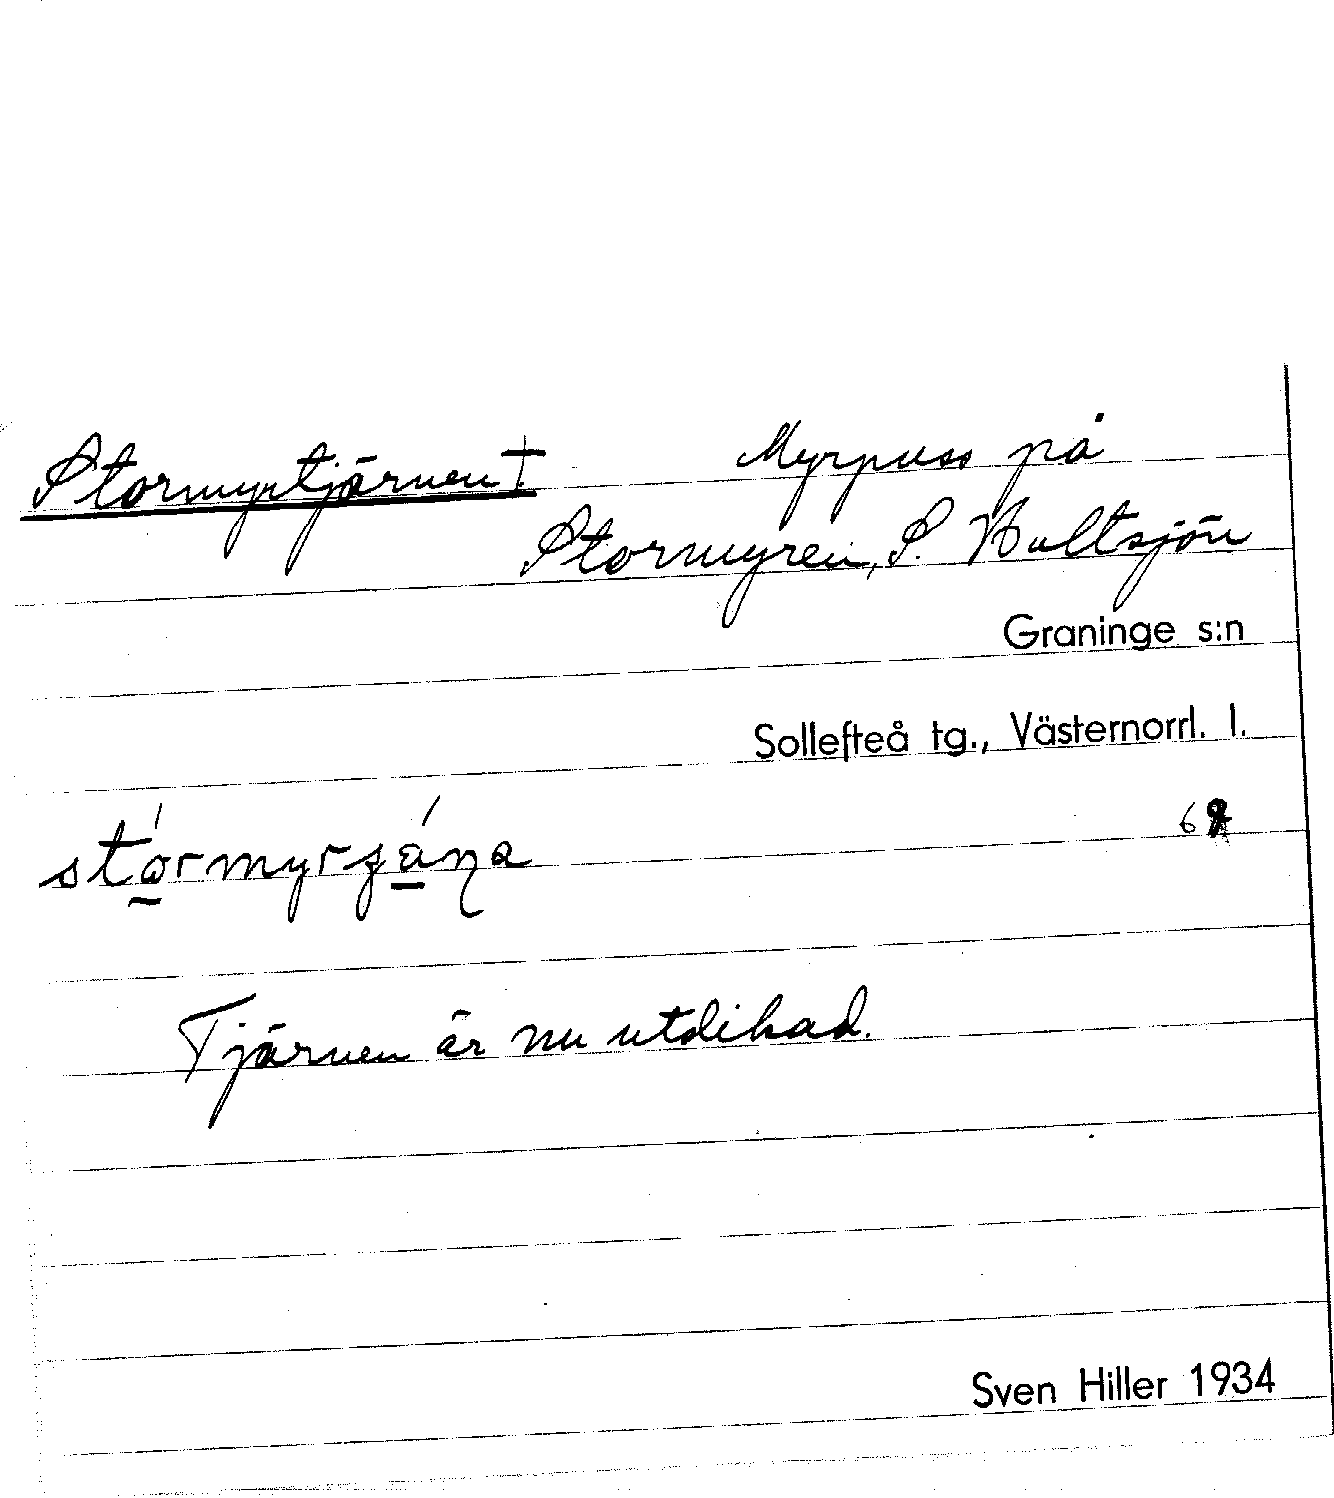 Stormyrtjärnen † Myrpuss på
Stormyren, S. Bultsjön
Graninge s:n
Sollefteå tg., Västernorrl. l.
stórmyrʒáŋa
Tjärnen är nu utdikad.
Sven Hiller 1934